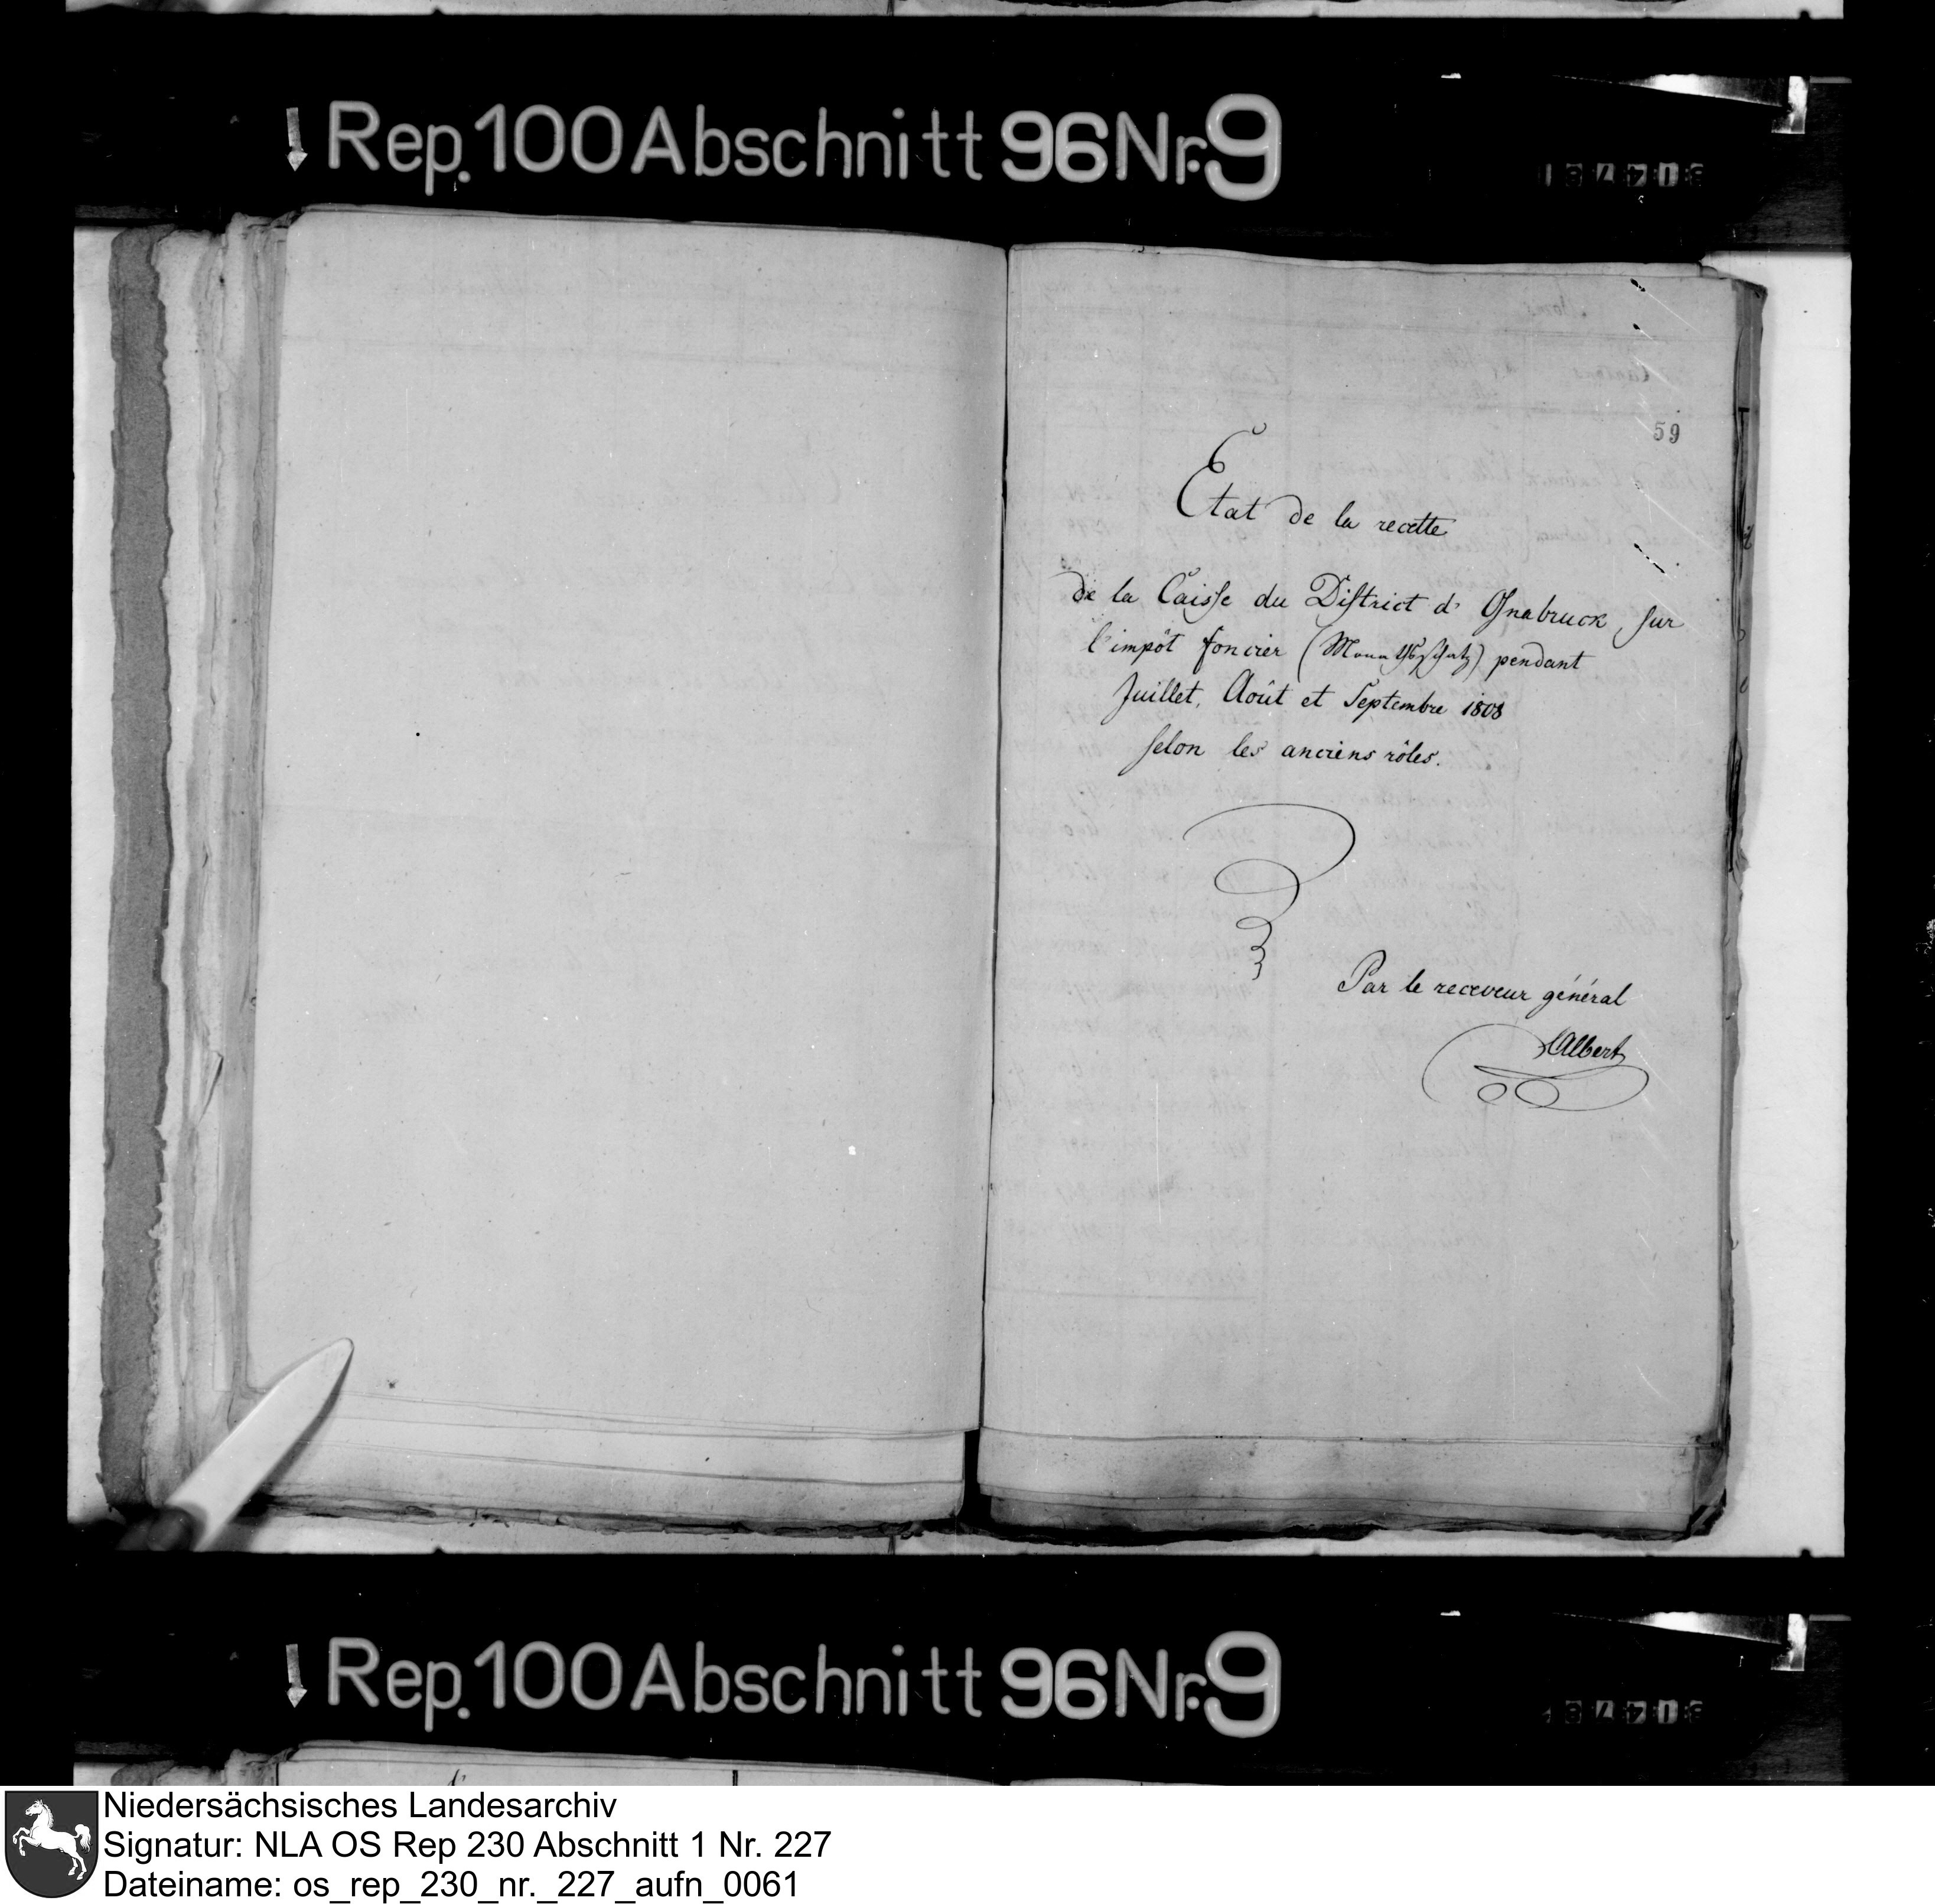 Rep. 100 Abschnitt 96 Nr. 9
59
Etat de la recette
de la Caisse du District d' Osnabruck, sur
l'impôt foncier (Monathsschatz) pendant
Juillet, Août et Septembre 1808
selon les anciens rôles.
Par le receveur général
Albert
Rep. 100 Abschnitt 96 Nr. 9
Niedersächsisches Landesarchiv
Signatur: NLA OS Rep 230 Abschnitt 1 Nr. 227
Dateiname: os_rep_230_nr._227_aufn_0061